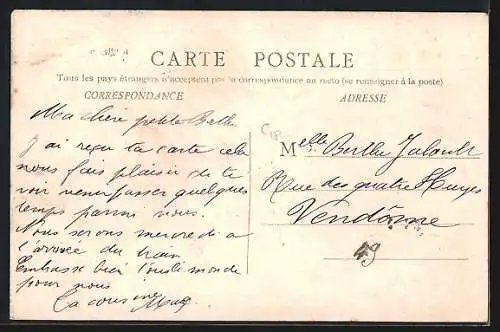 CARTE POSTALE
Tous les pays étrangers n'acceptent pas la correspondance au recto (se renseigner à la poste)
CORRESPONDANCE
Ma chère petite Berthe
J'ai reçu ta carte cela
nous fais plaisir de te
voir venir passer quelques
temps parmi nous.
Nous serons mercredi a
l'arrivée du train
Embrasse bien tout le monde
pour nous
Ta cousine
ADRESSE
Melle Berthe
Rue des quatre Huyes
Vendôme
49